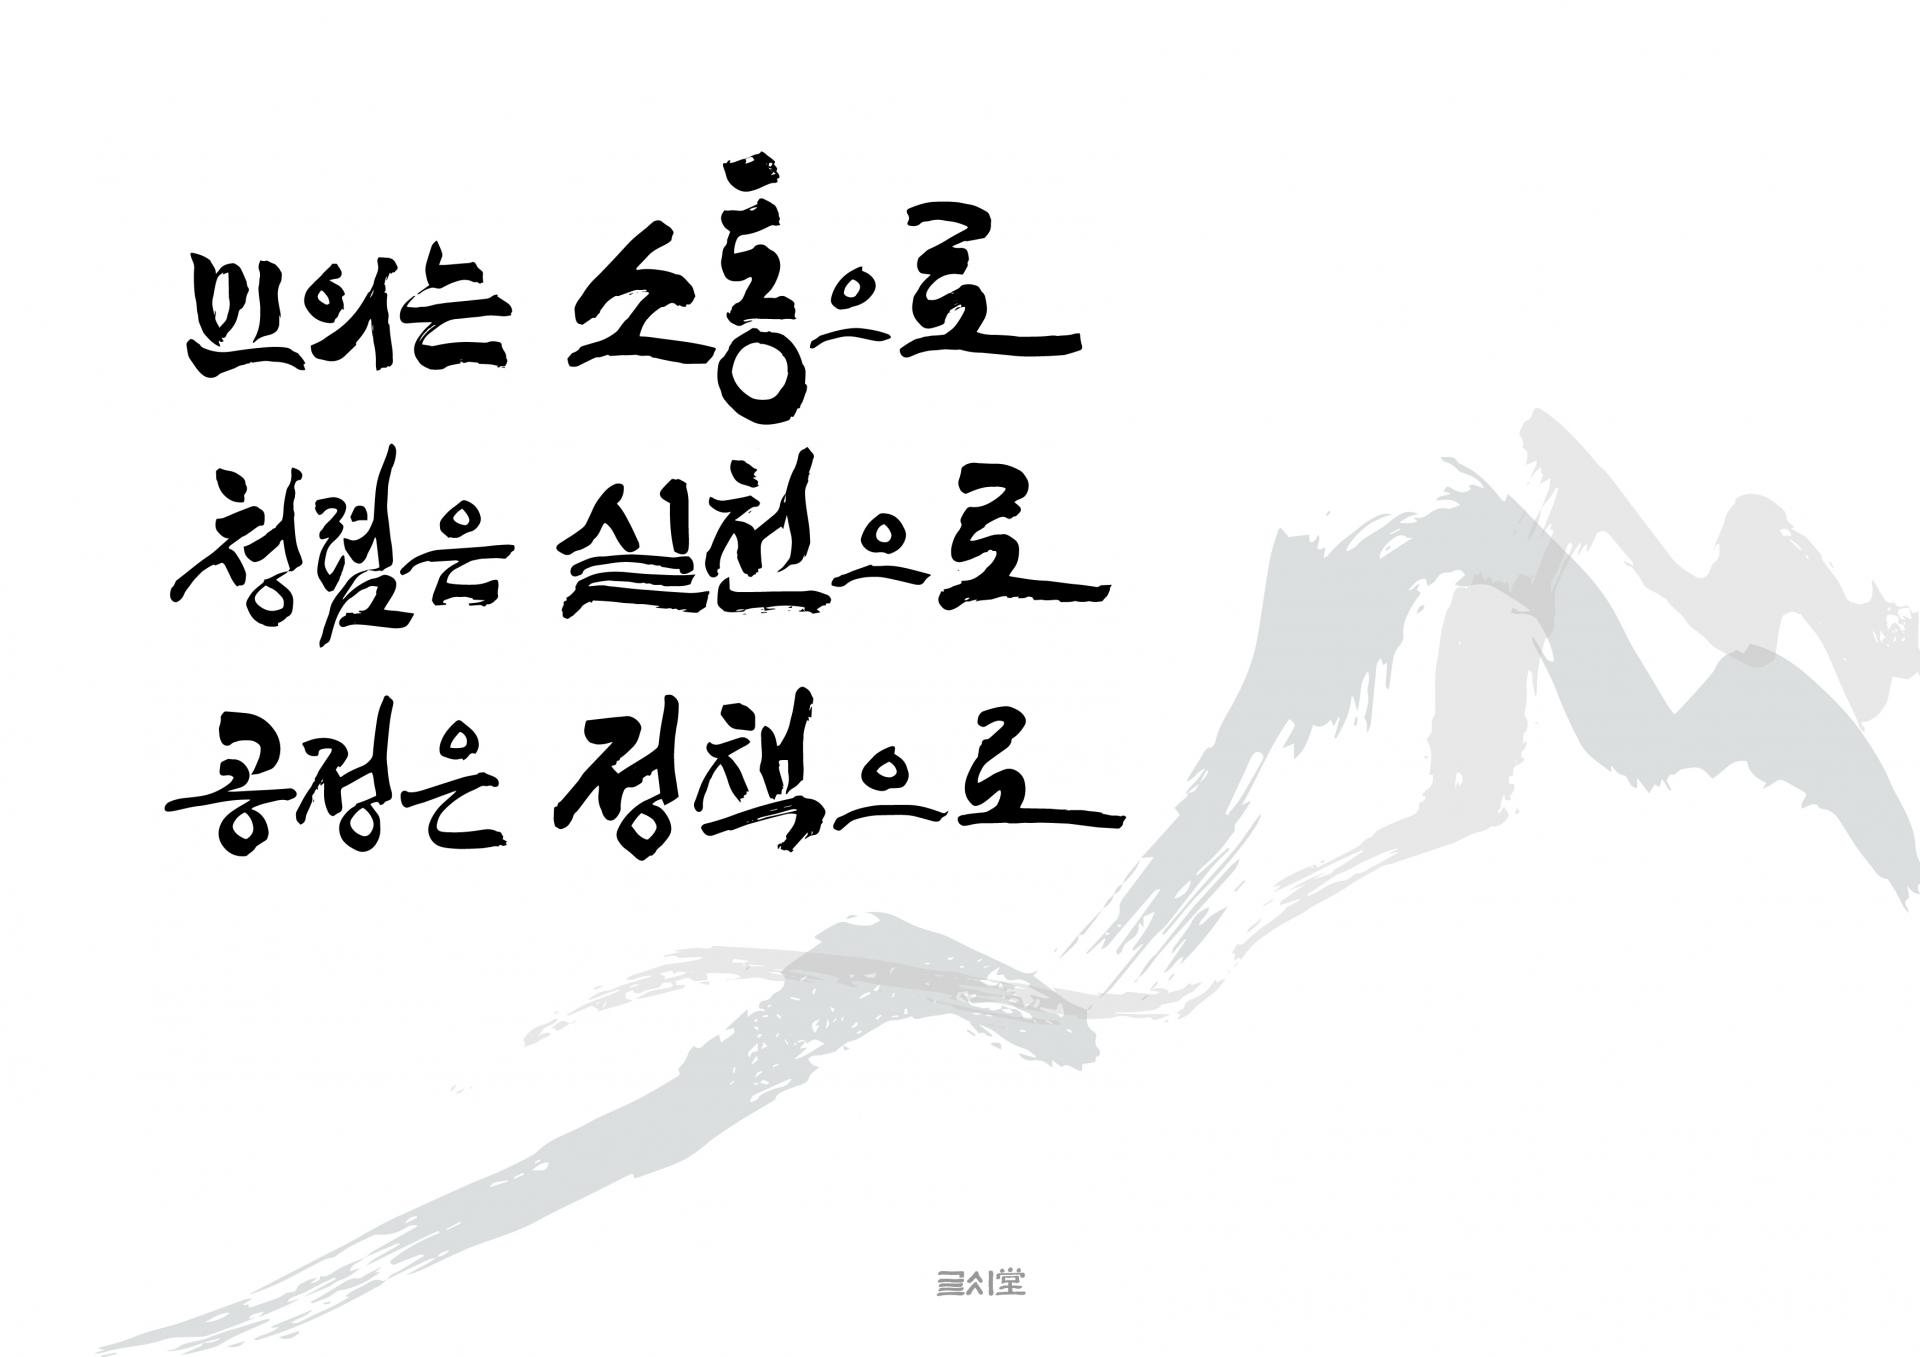 민의는 소통으로
청렴은 실천으로
공정은 정책으로
글씨堂